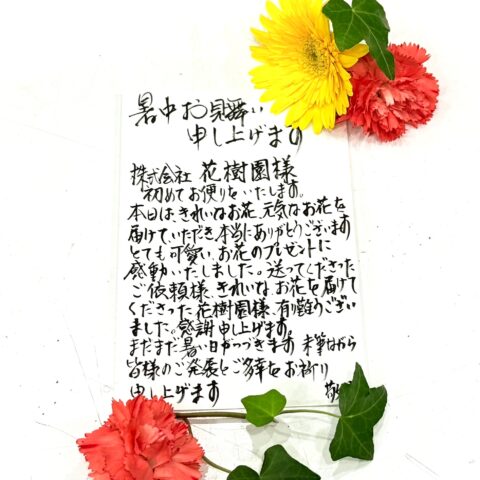 暑中お見舞い
申し上げます
株式会社 花樹園様
初めてお便りをいたします。
本日は、きれいなお花、元気なお花を
届けていただき本当にありがとうございます
とても可愛い、お花のプレゼントに
感動いたしました。送ってくださった
ご依頼様、きれいなお花を届けて
くださった花樹園様、有り難うござい
ました。感謝申し上げます。
まだまだ暑い日がつづきます 末筆ながら
皆様のご発展とご多幸をお祈り
申し上げます